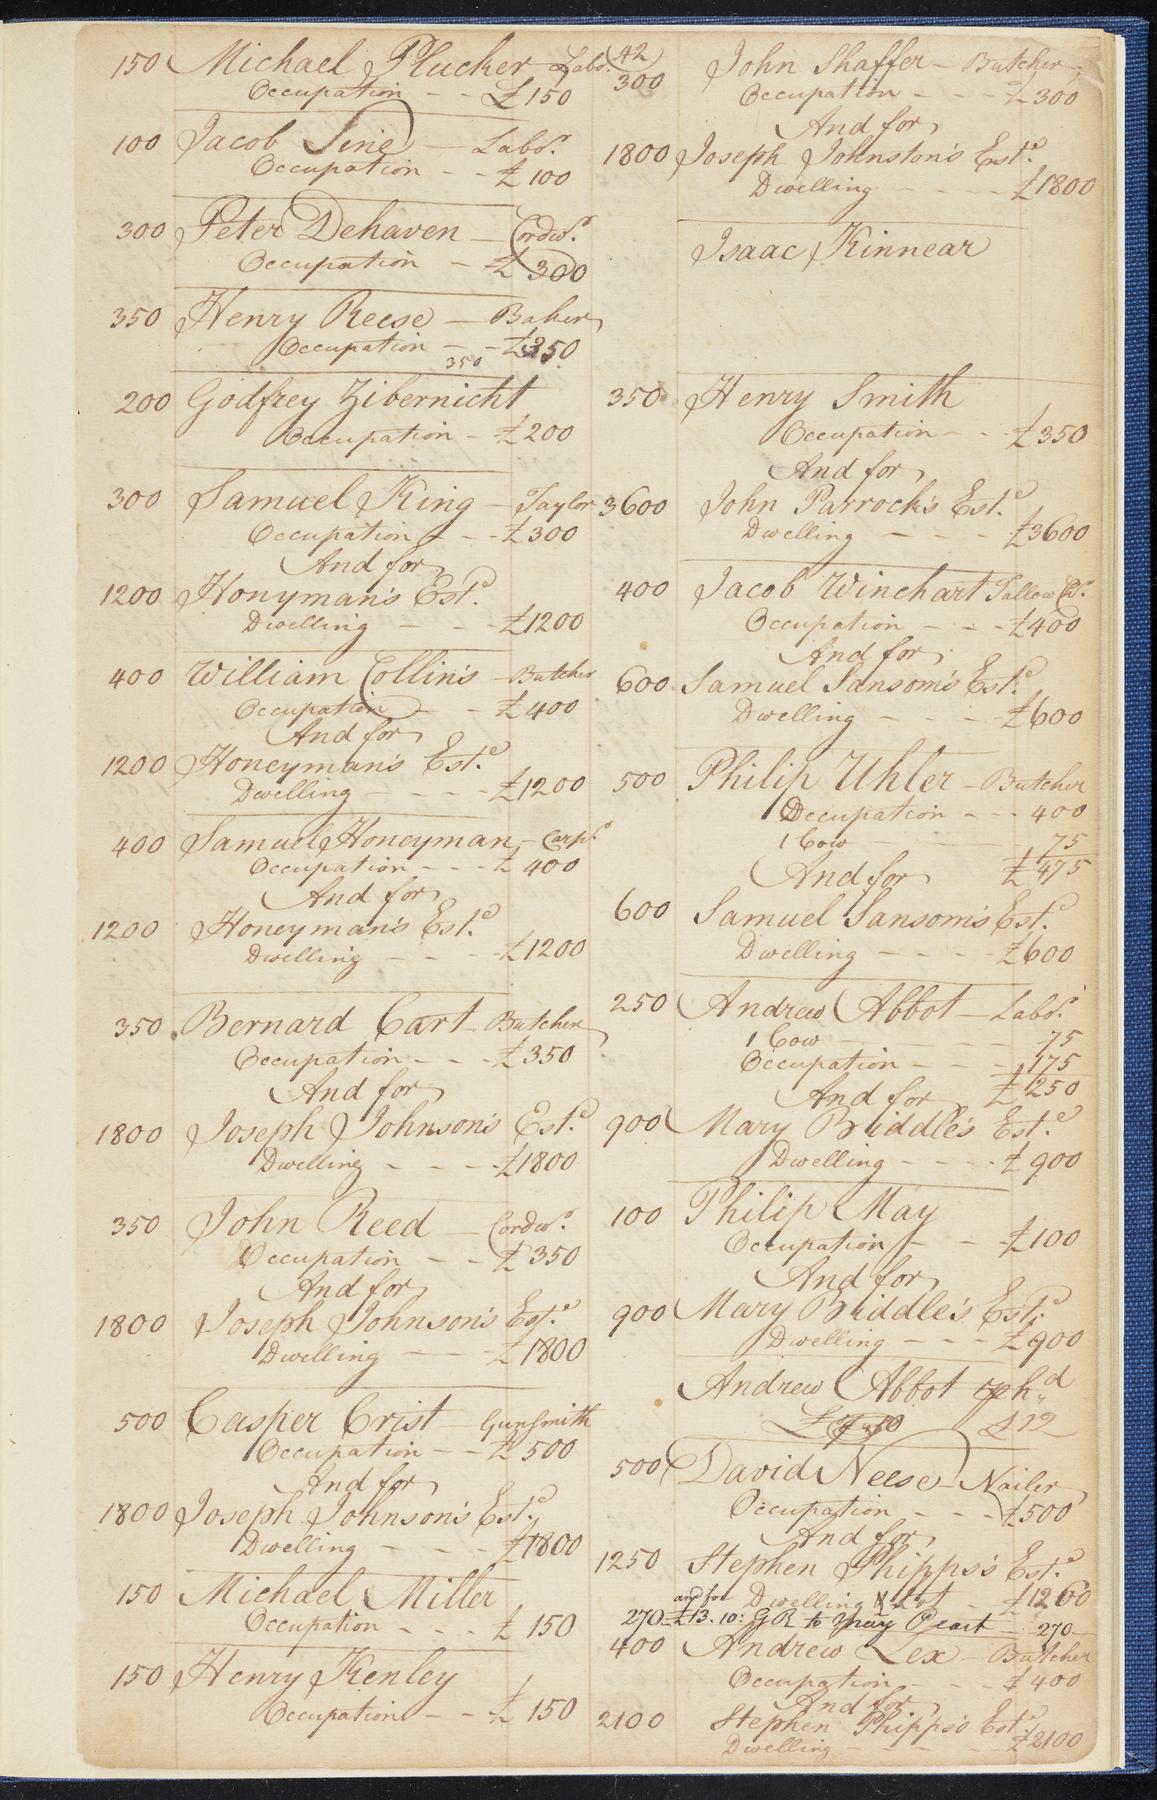 150 Michael Plucker Labr.
Occupation - - £150
100 Jacob Sine - Labor.
Occupation - - £100
300 Peter Dehaven - Cordwr.
Occupation - £300
350 Henry Reese - Baker
Occupation - - £350
350
200 Godfrey Zibernicht
Occupation - £200
300 Samuel King - Taylor
Occupation - - £300
And for
1200 Honyman's Este.
Dwelling - - - £1200
400 William Collins - Butcher
Occupation - - £400
And for
1200 Honeyman's Este.
Dwelling - - - £1200
400 Samuel Honeyman - Carpr.
Occupation - - £400
And for
1200 Honeyman's Este.
Dwelling - - - £1200
350 Bernard Cart Butcher
Occupation - - - £350
And for
1800 Joseph Johnson's Este.
Dwelling - - - - £1800
350 John Reed - Cordwr.
Occupation - - £350
And for
1800 Joseph Johnson's Este.
Dwelling - - £1800
500 Casper Crist - Gunsmith
Occupation - - £500
And for
1800 Joseph Johnson's Este.
Dwelling - - - £1800
150 Michael Miller
Occupation - - - £150
150 Henry Kenley
Occupation - - £150
42
300 John Shaffer - Butcher
Occupation - - - £300
And for
1800 Joseph Johnston's Este.
Dwelling - - - - £1800
Isaac Kinnear
350 Henry Smith
Occupation - - £350
And for
3600 John Parrock's Este.
Dwelling - - - £3600
400 Jacob Winehart Tallow Cr.
Occupation - - - £400
And for
600 Samuel Sansom's Este.
Dwelling - - - £600
500 Philip Uhler - Butcher
Occupation - - - 400
1 Cow 75
And for £475
600 Samuel Sansom's Este.
Dwelling - - - - £600
250 Andrew Abbot - Labr.
1 Cow - - - - 75
Occupation - - - 175
And for £250
900 Mary Briddle's Este.
Dwelling - - - - £900
100 Philip May
Occupation - - - £100
And for
900 Mary Briddle's Este.
Dwelling - - - £900
Andrew Abbot hd
£12
500 David Neese - Nailer
Occupation - - - £500
And for
1250 Stephen Phipps's Este.
and for Dwelling & Lot - £1260
270 £13.10: GR to Peart 270
400 Andrew Lex - Butcher
Occupation - - - £400
And for
2100 Stephen Phipps's Este.
Dwelling - - - - £2100